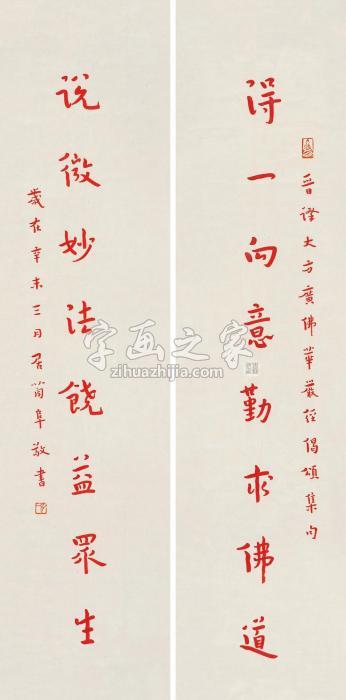 晉譯大方廣佛華嚴經偈頌集句
得一向意勤求佛道
說微妙法饒益眾生
歲在辛未三月居簡阜敬書
字画之家
zihuazhijia.com